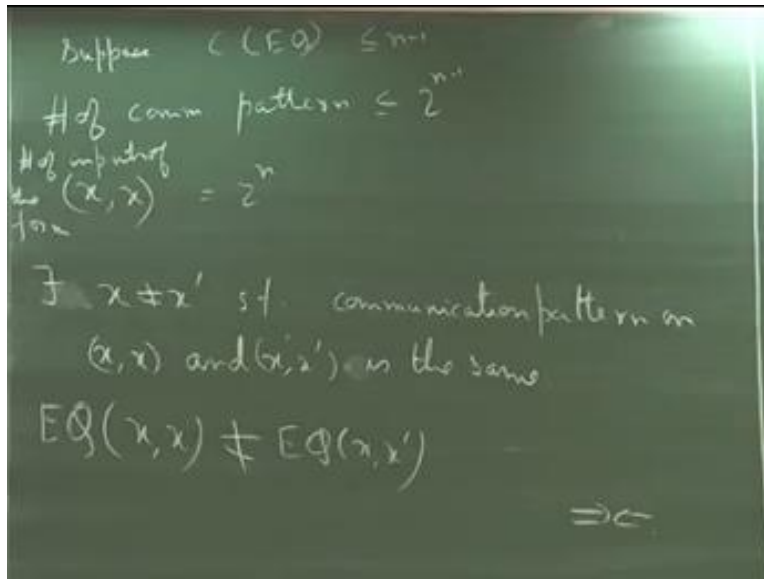 Suppose C(EQ) ≤ n-1
# of comm pattern ≤ 2^{n-1}
# of input of
the (x, x) = 2^n
form
∃ x ≠ x' s.t. communication pattern on
(x, x) and (x', x') is the same
EQ(x, x) ≠ EQ(x, x')
⇒⇐